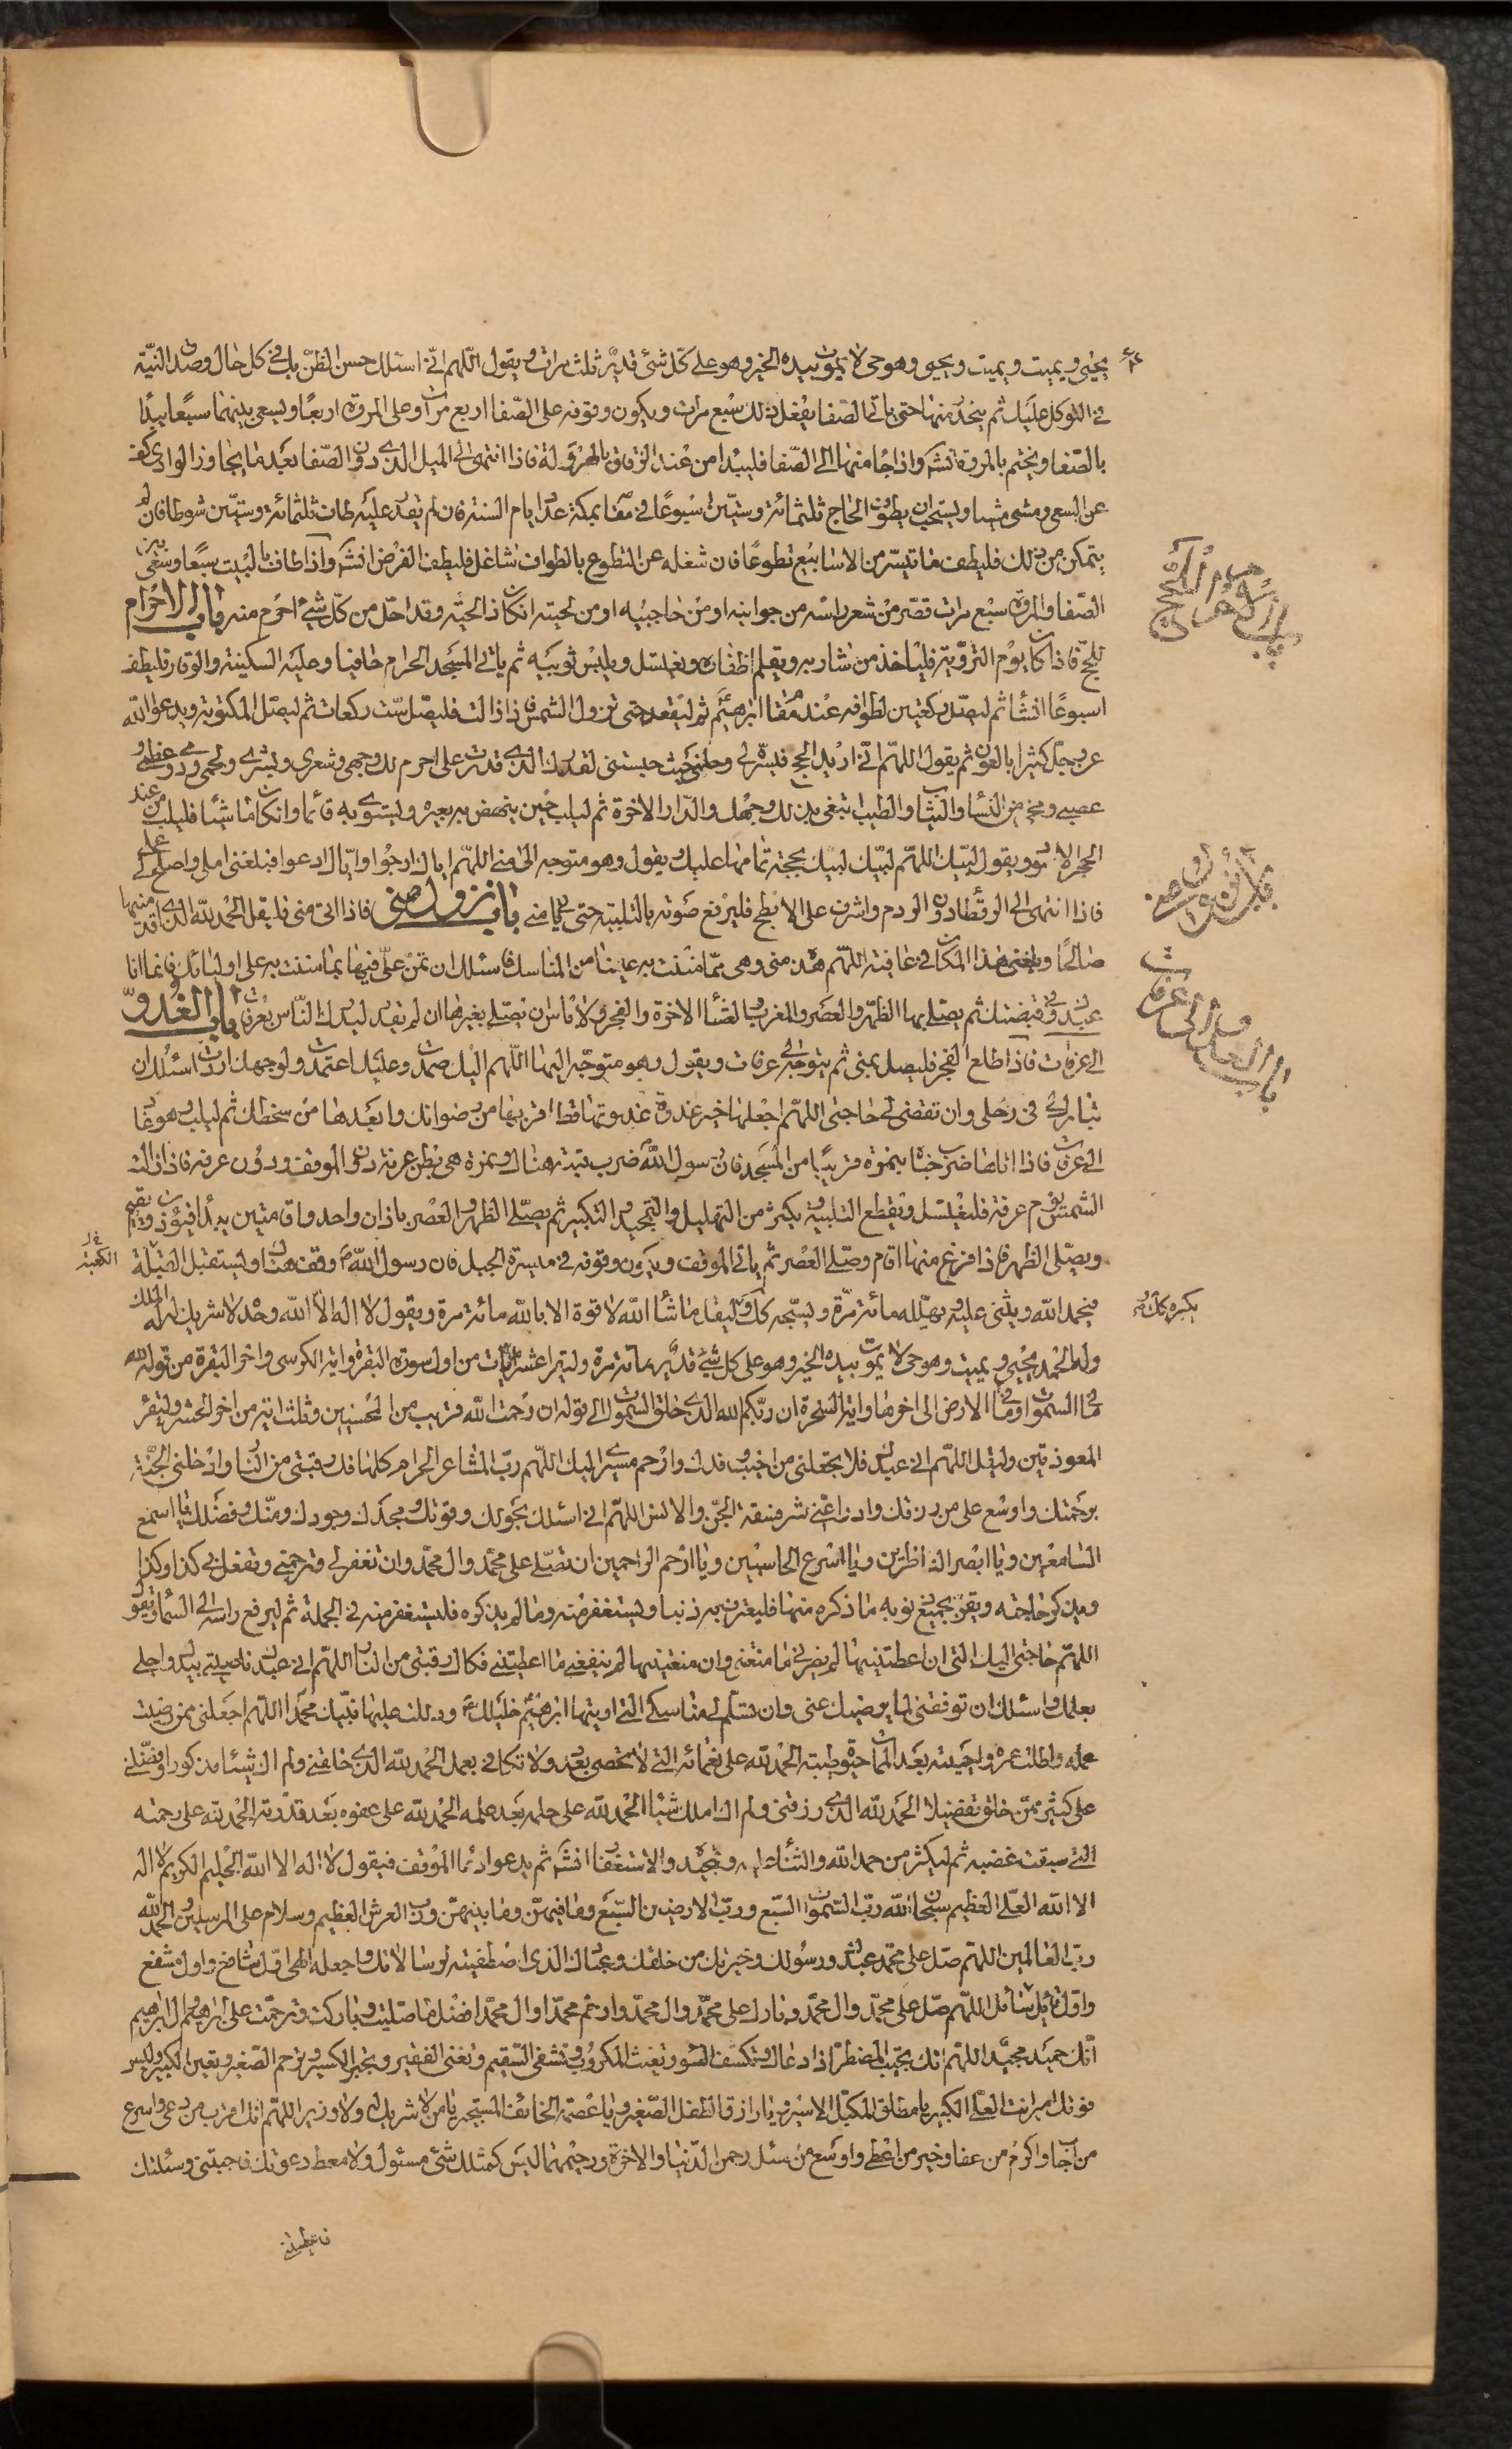 يحيى ويميت ويميت ويحيى وهو حى لا يموت بيده الخير وهو على كلّ شئ قدير ثلث مرات ويقول اللّهم انّى اسئلك حسن الظنّ بك فى كل حال وصدق النيّة
فى التوكل عليك ثم ينحدر منها حتى ياتى الصّفا يفعل ذلك سبع مرات ويكون وقوفه على الصّفا اربع مرات وعلى المروة اربعًا ويسعى بينهما سبعًا يبدأ
بالصّفا ويختم بالمروة انشه واذا جا منها الى الصّفا فليبدا من عند الزقاق بالهرولة فاذا انتهى الى الميل الذى دون الصّفا بعد ما يجاوز الوادى كف
عن السعى ومشى مشيا ويستحب ان يطوف الحاج ثلثمائة وستّين اسبوعًا فى مقامه بمكة عدد ايام السنة فان لم يقدر عليه طاف ثلثمائة وستّين شوطا فان لم
يتمكن من ذلك فليطف ما تيسّر من الاسابيع تطوعًا فان شغله عن التطوع بالطواف شاغل فليطف الفرض انشه واذا طاف بالبيت سبعًا وسعى بين
الصّفا والمروة سبع مرات قصّر من شعر راسه من جوانبه او من حاجبيه او من لحيته ان كان ذا لحيته وقد احلّ من كلّ شئ احرم منه باب الاحرام
للحج فاذا كان يوم التروية فلياخذ من شاربه ويقلم اظفاره ويغتسل ويلبس ثوبيه ثم ياتى المسجد الحرام حافيا وعليه السكينة والوقار فليطف
اسبوعًا انشا ثم ليصل ركعتين لطوافه عند مقام ابرهيم ثم ليقعد حتى تزول الشمس فاذا زالت فليصّل ست ركعات ثم ليصّل المكتوبة ويدعو الله
عز وجل كثيرا بالعون ثم يقول اللهم انّى اريد الحج فيسّره لى وحلنى حيث حبستنى لقدرك الذى قدرت على احرم لك وجهى وشعرى وبشرى ولحمى ودمى وعظامى و
عصبى ومخى من النسا والثياب والطيب ابتغى بذلك وجهك والدّار الاخرة ثم ليلب حين ينهض به بعيره ويستوى به قائما وان كان ماشيا فليلب من عند
الحجر الاسود ويقول لبّيك اللهّم لبيّك لبيك بحجة تمامها عليك ويقول وهو متوجه الى منى اللّهم اياك ارجوا وايّاك ادعوا فبلغنى املى واصلح لى عملى
فاذا انتهى الى الرقطا دون الردم واشرف على الابطح فليرفع صوته بالتلبية حتى ياتى منى باب نزول منى فاذا اتى منى فليقل الحمد لله الذى اقدمنيها
صالحًا وبلغنى هذا المكان فى عافية اللهّم هذه منى وهى ممّا مننت به علينا من المناسك فاسئلك ان تمنّ علىّ فيها بما مننت به على اوليائك فانما انا
عبدك وفى قبضتك ثم يصلى بها الظّهر والعصر والمغرب والعشا الاخرة والفجر ولا باس ان يصلى بغيرها ان لم يقدر ليدرك النّاس بعرفات باب الغدوّ
الى عرفات فاذا طلع الفجر فليصل بمنى ثم يتوجه الى عرفات ويقول وهو متوجّه اليها اللّهم اليك صمدت وعليك اعتمدت ولوجهك اردت اسئلك ان
تبارك لى فى رحلى وان تقضى لى حاجتى اللهّم اجعلها خير غدوة غدوتها قط اقربها من رضوانك وابعدها من سخطك ثم ليلب وهو غاد
الى عرفات فاذا اتاها ضرب خباه بنمرة قريبًا من المسجد فان رسول الله ضرب قبته هناك ونمرة هى بطن عرنة دون الموقف ودون عرفة فاذا زالت
الشمس يوم عرفة فليغتسل ويقطع التلبية ويكثر من التهليل والتمجيد والتكبير ثم يصلّى الظهر والعصر باذان واحد واقامتين يبدأ فيؤذن ويقيم
ويصلّى الظهر فاذا فرغ منها اقام وصلّى العصر ثم ياتى الموقف ويكون وقوفه فى ميسرة الجبل فان رسول الله ص وقف هناك وليستقبل القبلة
الكعبة خ ل
فيحمد الله ويثنى عليه ويهلله مائة مرّة ويسبّحه كك وليقل ما شأ الله لا قوة الا بالله مائة مرة ويقول لا اله الاّ الله وحده لا شريك له له الملك
يكبره كك و
وله الحمد يحيى ويميت وهو حى لا يموت بيده الخير وهو على كل شئ قدير مائة مرة وليقرا عشر ايات من اول سورة البقرة واية الكرسى واخر البقرة من قوله لله
ما فى السموات وما فى الارض الى اخرها واية السخرة ان ربّكم الله الذى خلق السموات الى قوله ان رحمت الله قريب من المحسنين وثلث اية من اخر الحشر وليقر
المعوذتين وليقل اللّهم انى عبدك فلا تجعلنى من اخيب وفدك وارحم مسيرى اليك اللهّم ربّ المشاعر الحرام كلها فك رقبتى من النار وادخلنى الجنّة
برحمتك واوسع على من رزقك وادرا عنّى شر فسقة الجنّ والانس اللهّم انى اسئلك بحولك وقوتك ومجدك وجودك ومنّك وفضلك يا اسمع
السامعين ويا ابصر الناظرين ويا اسرع الحاسبين ويا ارحم الراحمين ان تصّلى على محمّد وال محمّد وان تغفر لى وترحمنى وتفعل بى كذا وكذا
ويذكر حاجته ويقر بجميع ذنوبه ما ذكره منها فليعترف به ذنبا ويستغفر منه وما لم يذكره فليستغفر منه فى الجملة ثم ليرفع راسه الى السما ويقول
اللهّم حاجتى اليك التى ان اعطيتنيها لم يضرنى ما منعتنى وان منعتنيها لم ينفعنى ما اعطيتنى فكاك رقبتى من النار اللهّم انى عبدك ناصيتى بيدك واجلى
بعلمك واسئلك ان توفقنى لما يرضيك عنى وان تسلّم لى مناسكى التى اريتها ابرهيم خليلك ع ودللت عليها نبّيك محمّدا اللّهم اجعلنى ممن رضيت
عمله واطلت عمره واحييته بعد الممات حيوة طيبة الحمد لله على نعمائه التى لا تحصى بعدد ولا تكافى بعمل الحمد لله الذى خلقنى ولم اك شيئا مذكورا وفضّلنى
على كثير ممّن خلق تفضيلا الحمد لله الذى رزقنى ولم اك املك شيئا الحمد لله على حلمه بعد علمه الحمد لله على عفوه بعد قدرته الحمد لله على رحمته
التى سبقت غضبه ثم ليكثر من حمد الله والثناء عليه وتمجيده والاستغفار انشه ثم يدعو ادعا الموقف فيقول لا اله الا الله الحليم الكريم لا اله
الا الله العلّى العظيم سبحان الله ربّ السّموات السّبع وربّ الارضين السّبع وما فيهنّ وما بينهنّ وربّ العرش العظيم وسلام على المرسلين والحمد لله
ربّ العالمين اللّهم صلّ على محمّد عبدك ورسولك وخيرتك من خلقك وعبدك الذى اصطفيته لرسالاتك واجعله الهى اوّل شافع واول مشفع
واوّل قائل اللّهم صلّ على محمّد وال محمّد وبارك على محمّد وال محمّد وارحم محمّدا وال محمّد افضل ما صليت وباركت وترحّمت على ابرهيم وال ابرهيم
انّك حميد مجيد اللّهم انك تجيب المضطرّ اذا دعاك وتكشف السّوء وتغيث المكروب وتشفى السّقيم وتغنى الفقير وتجبر الكسير وترحم الصّغير وتعين الكبير وليس
فوقك امير انت العلّى الكبير يا مطلق المكبّل الاسير ويا رازق الطفل الصّغير ويا عصمة الخائف المستجير يا من لا شريك له ولا وزير اللّهم انك اقرب من دعى واسرع
من اجاب واكرم من عفا وخير من اعطى واوسع من سئل رحمن الدّنيا والاخرة ورحيمهما ليس كمثلك شئ مسئول ولا معط دعوتك فاجبتنى وسئلتك
فاعطيتنى
باب الاحرام للحج
باب نزول منى
باب الغدو الى عرفات